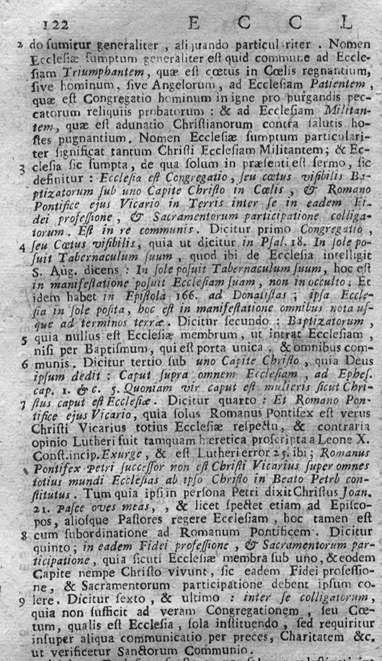 122 E C C L
2 do sumitur generaliter, aliquando particulariter. Nomen
Ecclesiæ sumptum generaliter est quid commune ad Eccle-
siam Triumphantem, quæ est cœtus in Cœlis regnantium,
sive hominum, sive Angelorum, ad Ecclesiam Patientem,
quæ est Congregatio hominum in igne pro purgandis pec-
catorum reliquiis probatorum: & ad Ecclesiam Militan-
tem, quæ est adunatio Christianorum contra salutis ho-
stes pugnantium. Nomen Ecclesiæ sumptum particulari-
ter significat tantum Christi Ecclesiam Militantem; & Ec-
3 clesia sic sumpta, de qua solum in præsenti est sermo, sic
definitur: Ecclesia est Congregatio, seu cœtus visibilis Ba-
ptizatorum sub uno Capite Christo in Cœlis, & Romano
Pontifice ejus Vicario in Terris inter se in eadem Fi-
dei professione, & Sacramentorum participatione colliga-
torum. Est in re communis. Dicitur primo Congregatio,
4 seu Cœtus visibilis, quia ut dicitur in Psal. 18. In sole po-
suit Tabernaculum suum, quod ibi de Ecclesia intelligit
S. Aug. dicens: In sole posuit Tabernaculum suum, hoc est
in manifestatione posuit Ecclesiam suam, non in occulto: Et
idem habet in Epistola 166. ad Donatistas; ipsa Eccle-
sia in sole posita, hoc est in manifestatione omnibus nota us-
que ad terminos terræ. Dicitur secundo: Baptizatorum,
5 quia nullus est Ecclesiæ membrum, ut intrat Ecclesiam,
nisi per Baptismum, qui est porta unica, & omnibus com-
6 munis. Dicitur tertio sub uno Capite Christo, quia Deus
ipsum dedit: Caput supra omnem Ecclesiam, ad Ephes.
cap. 1. & c. 5. Quoniam vir caput est mulieris sicut Chri-
7 stus caput est Ecclesiæ. Dicitur quarto: Et Romano Pon-
tifice ejus Vicario, quia solus Romanus Pontifex est verus
Christi Vicarius totius Ecclesiæ respectu, & contraria
opinio Lutheri fuit tamquam hæretica proscripta a Leone X.
Const. incip. Exurge, & est Lutheri error 25. ibi; Romanus
Pontifex Petri successor non est Christi Vicarius super omnes
totius mundi Ecclesias ab ipso Christo in Beato Petro con-
stitutus. Tum quia ipsi in persona Petri dixit Christus Joan.
21. Pasce oves meas,, & licet spectet etiam ad Episco-
pos, aliosque Pastores regere Ecclesiam, hoc tamen est
8 cum subordinatione ad Romanum Pontificem. Dicitur
quinto; in eadem Fidei professione, & Sacramentorum par-
ticipatione, quia sicuti Ecclesiæ membra sub uno, & eodem
Capite nempe Christo vivunt, sic eadem Fidei professio-
ne, & Sacramentorum participatione debent ipsum co-
9 lere. Dicitur sexto, & ultimo: inter se colligatorum,
quia non sufficit ad veram Congregationem, seu Cœ-
tum, qualis est Ecclesia, sola instituendo, sed requiritur
insuper aliqua communicatio per preces, Charitatem &c.
ut verificetur Sanctorum Communio.